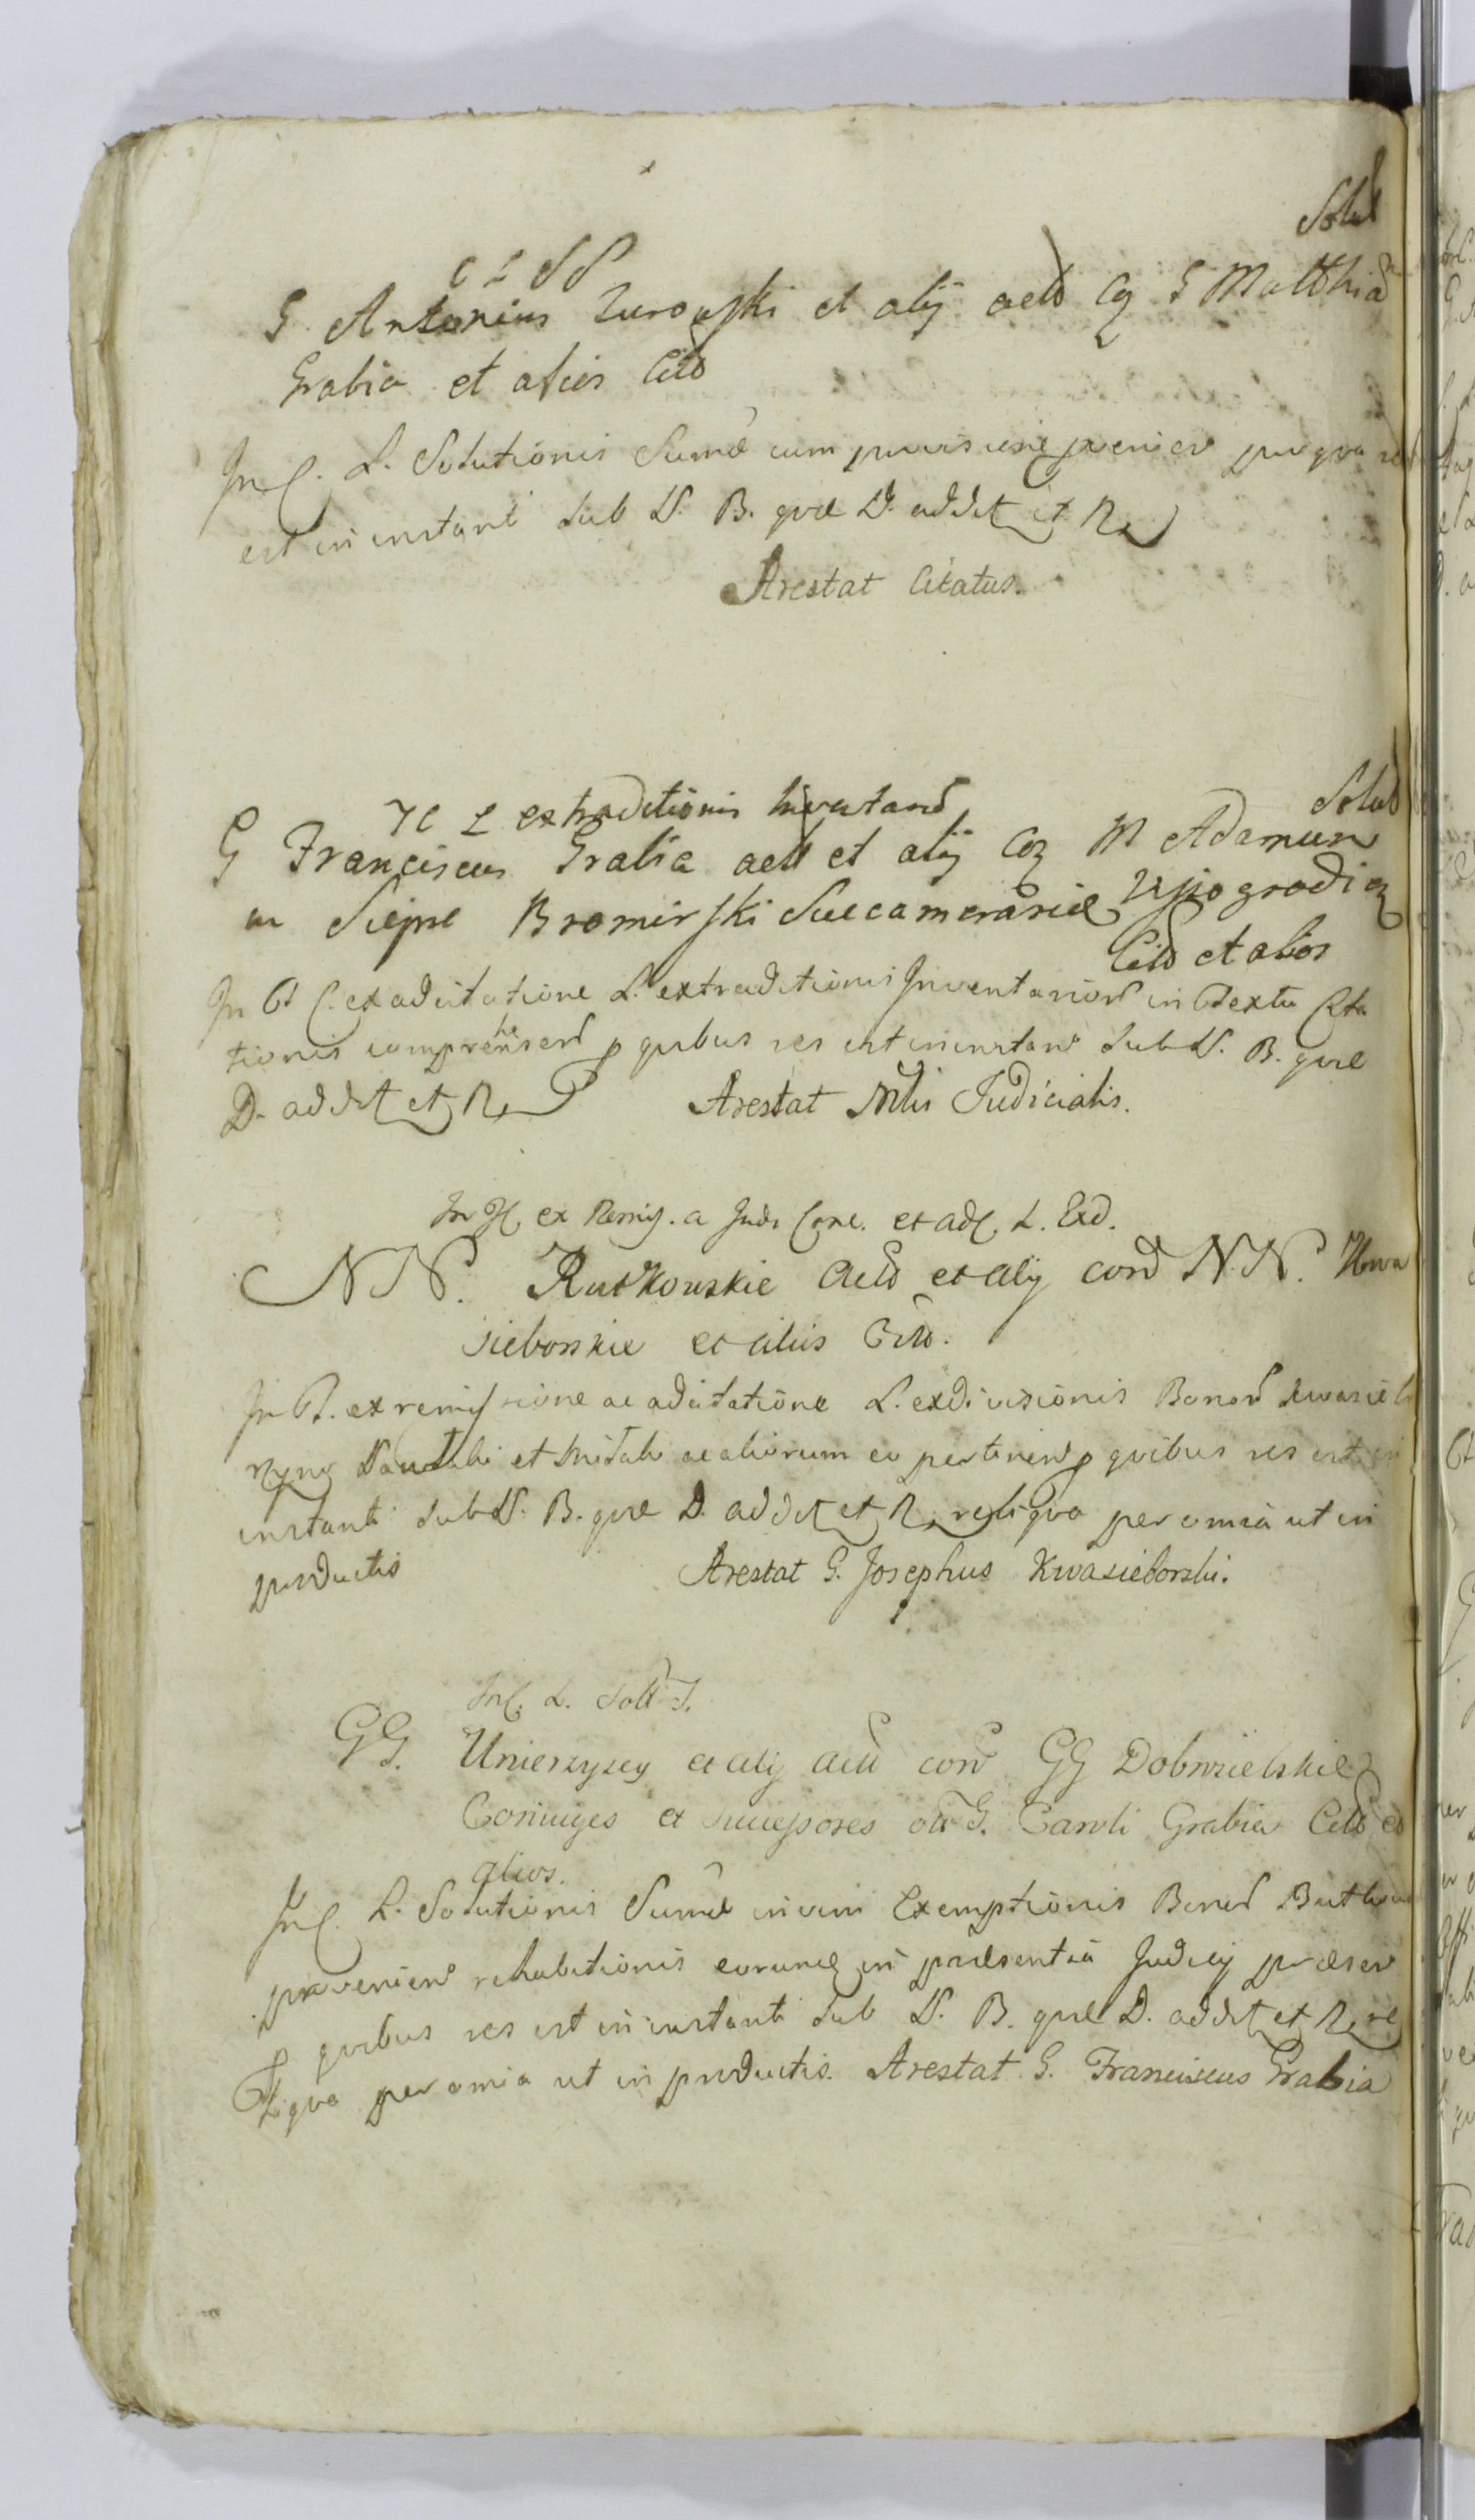 Solut
C L S S
G Antonius Zurowski et alij actô Cq G Matthia
Grabia et alios Citô
In C. L. Solutionis Sumæ cum provisione provenien pro qva res
est in instanti sub N. B. qvæ D. addet et R
Arestat Citatus.
Solut
H C L extraditionis Inventarior
G Franciscus Grabia actô et alij Cq M Adamum
in Sieprc Bromirski Succamerariæ Wyssogrodien
Citô et alios
In Pt C. ex adcitatione L. extraditionis Inventariorû in Ptextu Cita
tionis comprehensorû p quibus res est in instanti sub N. B. qvæ
D. addet et R Arestat Mtis Judicialis.
In H. ex Remis. a Jud. Cone. et adc. L. Exd.
NN. Rutkowskie Actô et alij con N.N. Kwa
sieborskie et alios Citô.
In Pt. ex remissione ac adcitatione L. exdivisionis Bonorû Kwasieb
et ac aliorum eo pertinen p quibus res est in
instanti sub N. B. qvæ D. addet et R. reliqva per omia ut in
productis Arestat G. Josephus Kwasieborski.
In C. L. Solut. S.
GG. Unierzyscy et alij actô con GG Dobrzielskie
Coniuges et Successores ol G. Caroli Grabia Citô et
alios.
In C. L. Solutionis Sumæ in vim Exemptionis Bonorû
provenien rehabitionis eorumq in præsentia Judicij præsen
p quibus res est in instanti sub N. B. qvæ D. addet et R. re
liqva per omia ut in productis. Arestat G. Franciscus Grabia